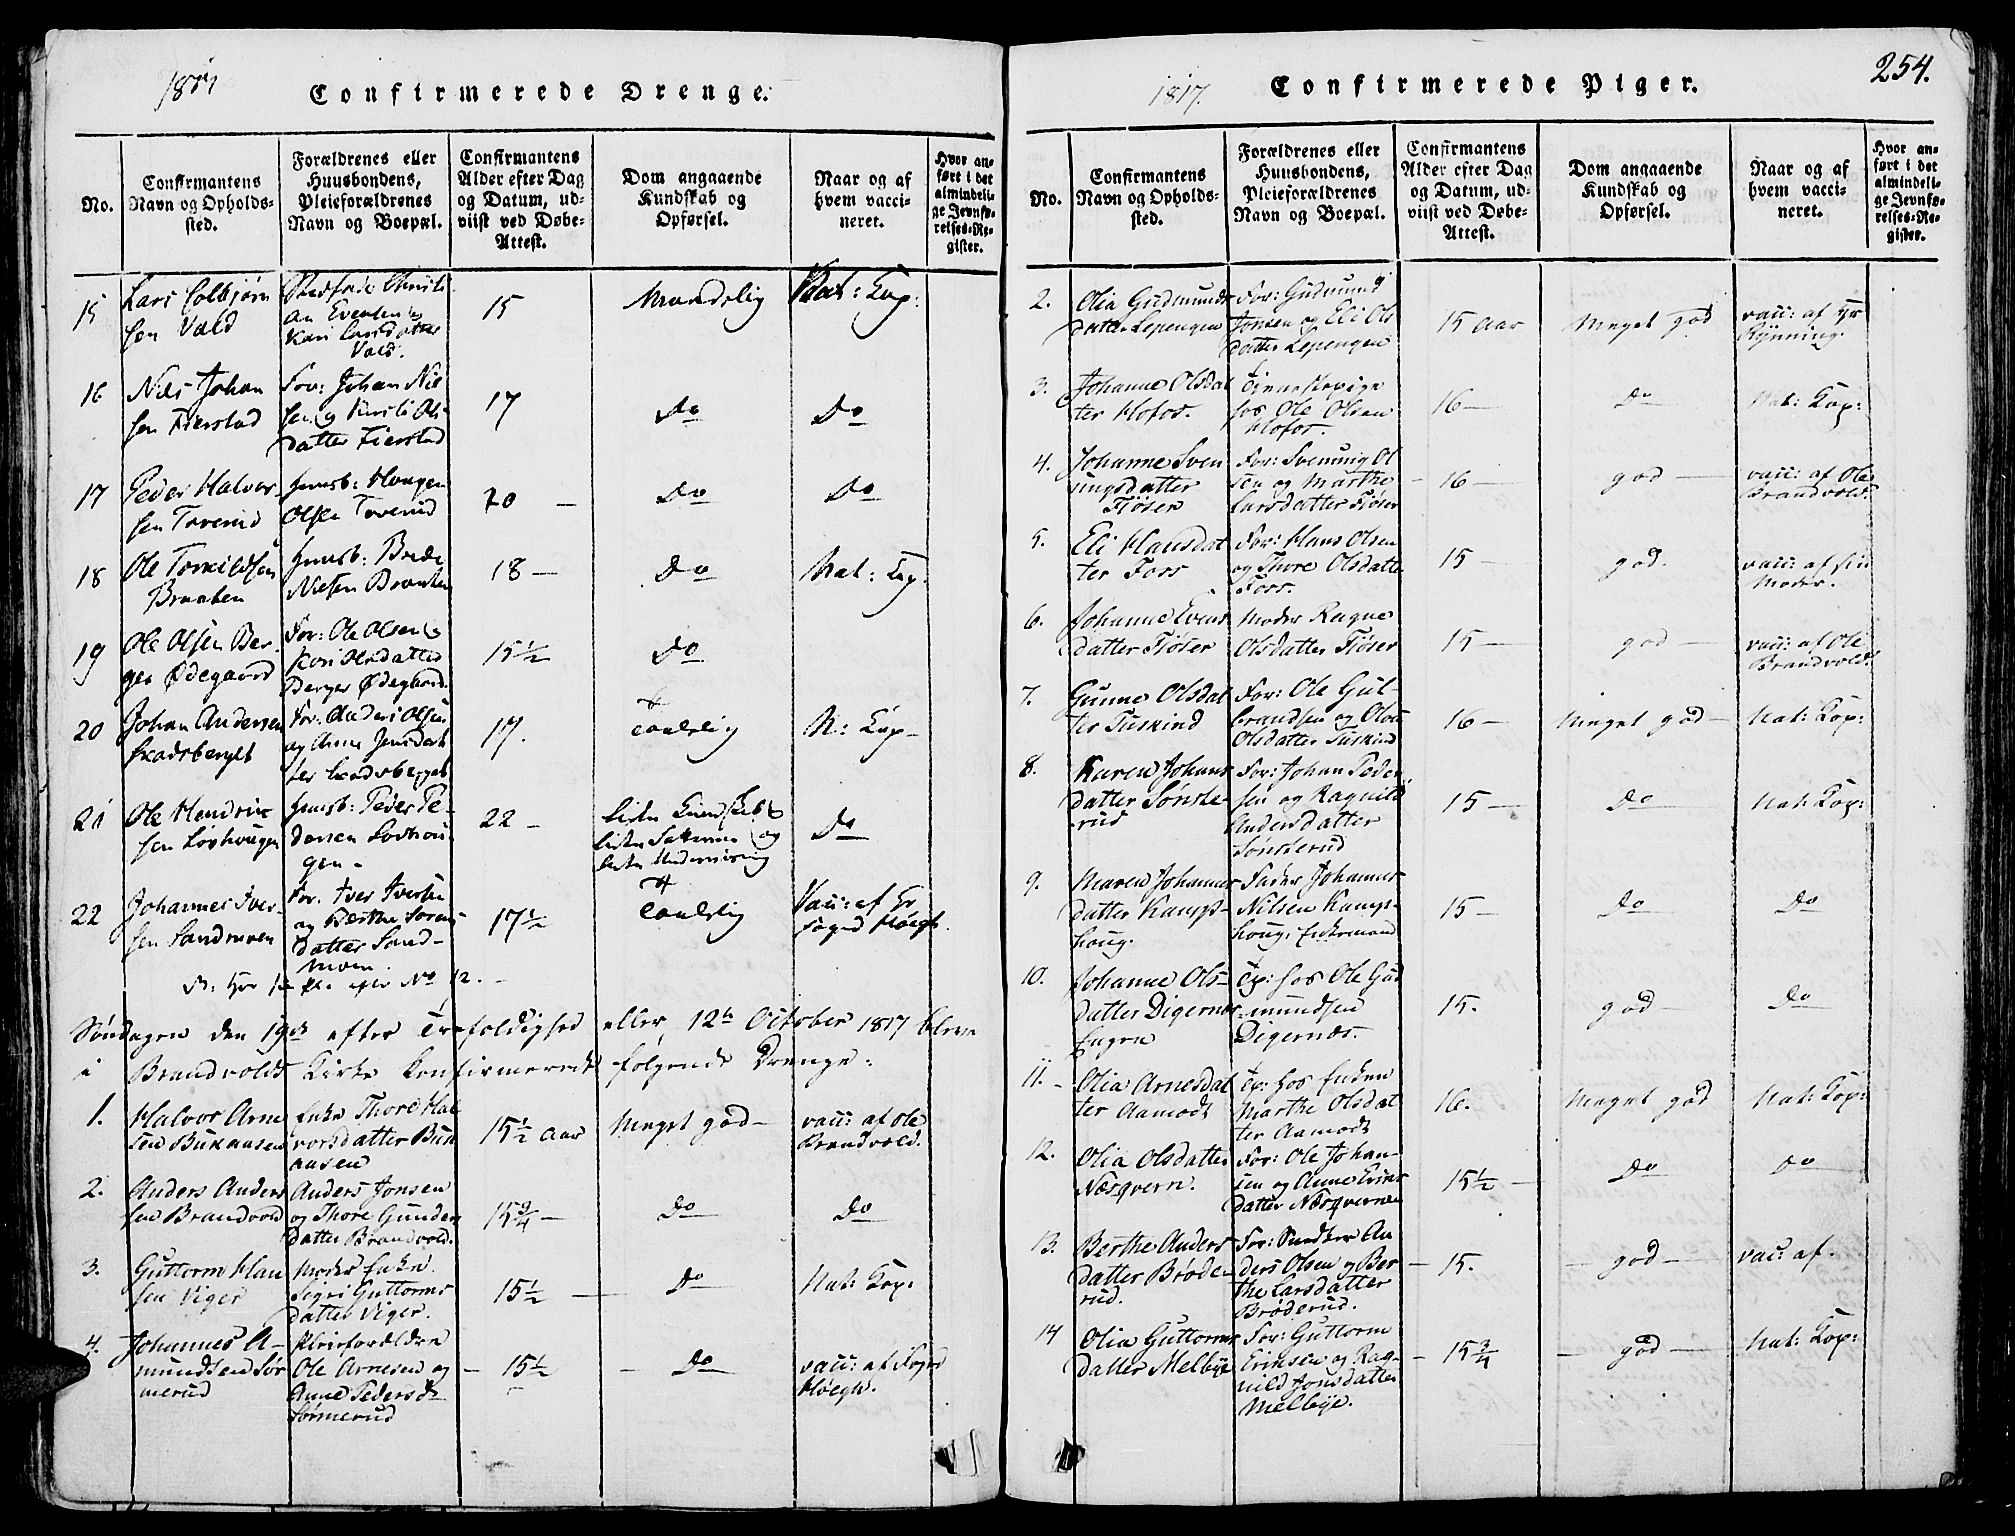 1817
Confirmerede Drenge.
No.
Confirmantens
Navn og Opholds-
sted.
Forældrenes eller
Huusbondens,
Pleieforældrenes
Navn og Boepæl.
Confirmantens
Alder efter Dag
og Datum, ud-
viist ved Døbe-
Attest.
Dom angaaende
Kundskab og
Opførsel.
Naar og af
hvem vacci-
neret.
Hvor an-
ført i det
almindeli-
ge Jevnfø-
relses-Re-
gister.
15
Lars Colbjørn
sen Vald
Stedfad: Christi
an Evensen og
Kari Larsdatter
Vald.
15
Maadelig
Nat: Kop:
16
Nils Johan
sen Fierstad
For: Johan Nil
sen og Kirsti Ols
datter Fierstad
17
Do
Do
17
Peder Halvor
sen Toverud
Huusb: Haagen
Olsen Toverud
20 —
Do
Do
18
Ole Torkildsen
Braaten
Huusb: Brede
Nielsen Braaten
18 —
Do
Nat: Kop:
19
Ole Olsen Ber
ger Ødegaard
For: Ole Olsen og
Kari Olsdatter
Berger Ødegaard.
15 1/2
Do
20
Johan Andersen
Skadsberget
For: Anders Olsen
og Anne Jensdat
ter Skadsberget
17.
taalelig
N: Kop-
21
Ole Henrik
sen Lövhaugen
Huusb: Peder Pe-
dersen Lovhau
gen-
22 —
liden Kundskab
liden Undervisning
Do
22
Johannes Iver-
sen Sandmoen
For: Iver Iversen
og Berthe Sorens
datter Sand-
moen.
17 1/2
taalelig
Vacc: af Hr
Foged Høegh.
efter No 12.
Søndagen den 19de efter Trefoldighed eller 12te October 1817 bleve
i Brandvolds Kirke Confirmerede følgende Drenge:
1.
Halvor Arne
sen Bukaasen
Enke Thore Hal
vorsdatter Buk
aasen
15 1/2 Aar
Meget god —
vacc: af Ole
Brandvold.
2.
Anders Anders
sen Brandvold
Anders Jonsen
og Thore Gunders
datter Brandvold.
15 3/4 —
Do
Do
3.
Guttorm Han
sen Viger
Moder Enke
Sigri Guttorms
datter Viger.
15 1/2 —
Do
Nat: Kop:
4.
Johannes A-
mundsen Sör
merud
Pleieforældre
Ole Arnesen og
Anne Pedersd:
Sörmerud
15 1/2
Do
vacc: af Foged
Høegh.
1817.
Confirmerede Piger.
254.
No.
Confirmantens
Navn og Opholds-
sted.
Forældrenes eller
Huusbondens,
Pleieforældrenes
Navn og Boepæl.
Confirmantens
Alder efter Dag
og Datum, ud-
viist ved Døbe-
Attest.
Dom angaaende
Kundskab og
Opførsel.
Naar og af
hvem vacci-
neret.
Hvor an-
ført i det
almindeli-
ge Jevnfø-
relses-Re-
gister.
2.
Olia Gudmunds
datter Lepengen
For: Gudmund
Jonsen og Eli Ols
datter Lepengen
15 Aar
Meget god
vacc: af Hr
Rynning.
3.
Johanne Olsdat
ter Hofos.
Tienestepige
hos Ole Olsen
Hofos.
16 —
Do
Nat: Kop:
4.
Johanne Sven
ningsdatter
Fiöser
For: Svenning Ol
sen og Marthe
Larsdatter Fiöser
16 —
god —
vacc: af Ole
Brandvold.
5.
Eli Hansdat
ter Fors
For: Hans Olsen
og Thore Olsdatter
Fors.
15 —
god.
vacc: af sin
Moder.
6.
Johanne Evens
datter Fiöser
Moder Ragne
Olsdatter Fiöser
15 —
god —
vacc: af Ole
Brandvold.
7.
Gunne Olsdat
ter Tuskind
For: Ole Gul-
brandsen og Olea
Olsdatter Tuskind
16 —
Meget god —
Nat: Kop:
8.
Karen Johans
datter Sönste-
rud
For: Johan Peder
sen og Ragnild
Andersdatter
Sönsterud
15 —
Do
Nat: Kop:
9.
Maren Johannes
datter Kamps-
houg.
Fader Johannes
Nilsen Kamps-
houg, Enkemand
15 —
Do
Do
10.
Johanne Ols-
datter Digernes
Engen
Tp: hos Ole Gud
mundsen
Digernæs.
15.
god —
Do
11. -
Olia Arnesdat
ter Aamodt
Tp: hos Enken
Marthe Olsdat
ter Aamodt
16.
Meget god
Nat: Kop:
12.
Olia Olsdatter
Næsqvern.
For: Ole Johan-
sen og Anne Eriks
datter Næsqvernen
15 1/2 —
Do
Do
13.
Berthe Anders
datter Bröde-
rud.
For: Snedker An
ders Olsen og Ber
the Larsdatter
Bröderud.
15.
god —
vacc: af.
14
Olia Guttorms
datter Melbye
For: Guttorm
Eriksen og Rag-
nild Jonsdatter
Melbye.
15 3/4
god —
Nat: Kop: